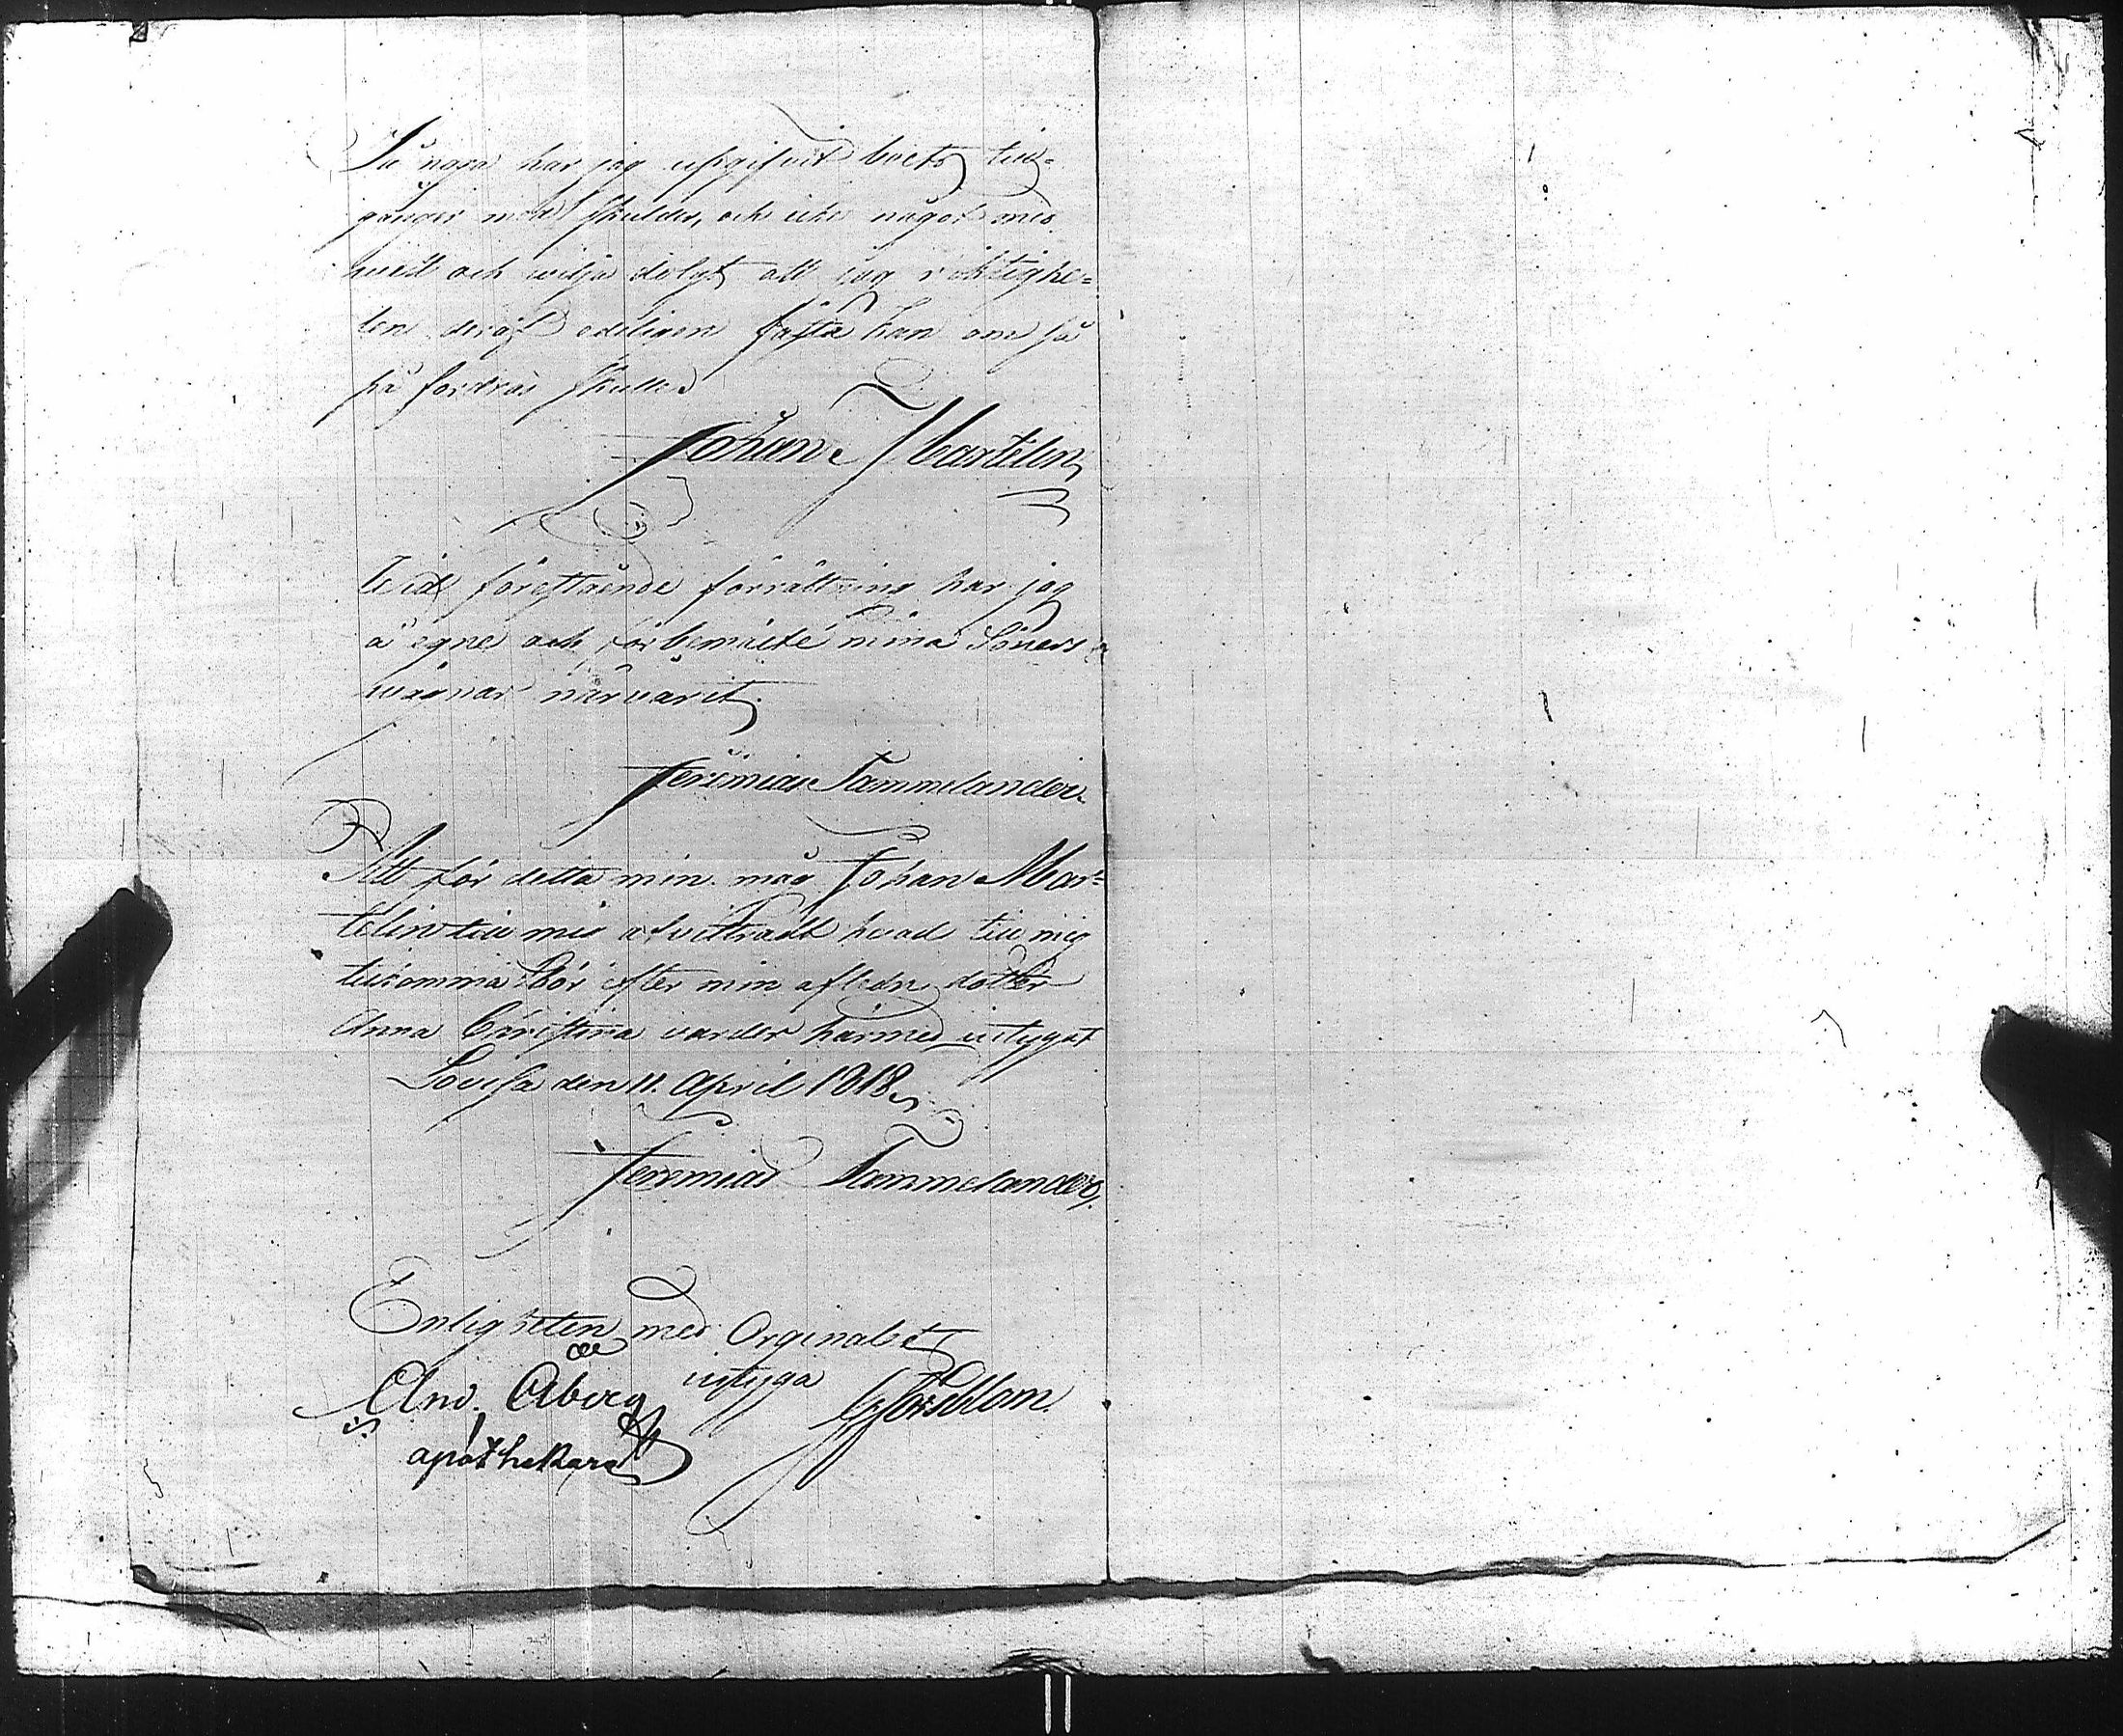 Så noga har jag uppgifvit boets till=
gångar med skulder, och icke något med
wett och wilja dolgt att jag riktighe=
ten deraf edeligen fästa kan om så
på fordras skulle
Johan Martelin
Wid förestående förrättning har jag
å egne och förbemälte mina Söners
wägnar närvarit.
Jeremias Tammelander.
Att för detta min måg Johan Mar=
telin till mig utvittradt hvad till mig
tillkomma bör efter min afledn. dotter
Anna Christina varder härmed intygat
Lovisa den 11. April 1818.
Jeremias Tammelander.
Enligheten med Orginalet
intyga
And. Åberg
apothekare
Forsblom.